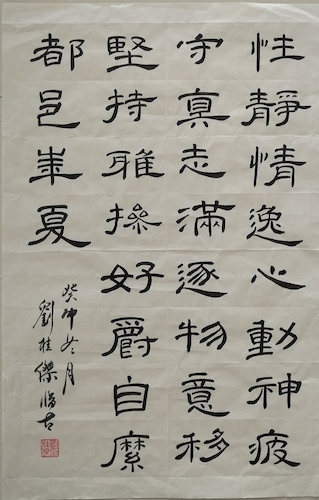 性靜情逸心動神疲
守真志滿逐物意移
堅持雅操好爵自縻
都邑華夏
癸卯冬月
劉桂傑臨古